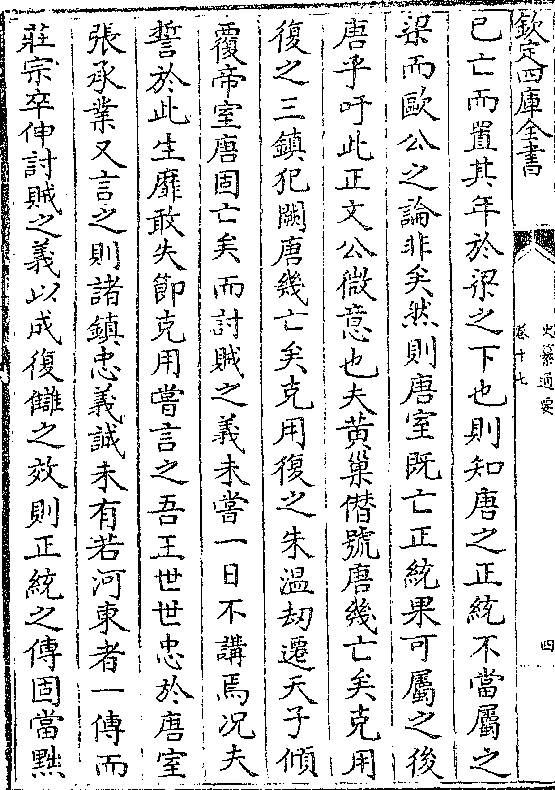 欽定四庫全書
史纂通要
卷十七
四
已亡而置其年於梁之下也則知唐之正統不當屬之
梁而歐公之論非矣然則唐室既亡正統果可屬之後
唐乎吁此正文公微意也夫黄巢僭號唐幾亡矣克用
復之三鎮犯闕唐幾亡矣克用復之朱温刼遷天子傾
覆帝室唐固亡矣而討賊之義未嘗一日不講焉况夫
誓於此生靡敢失節克用嘗言之吾王世世忠於唐室
張承業又言之則諸鎮忠義誠未有若河東者一傳而
莊宗卒伸討賊之義以成復讎之效則正統之傳固當黜